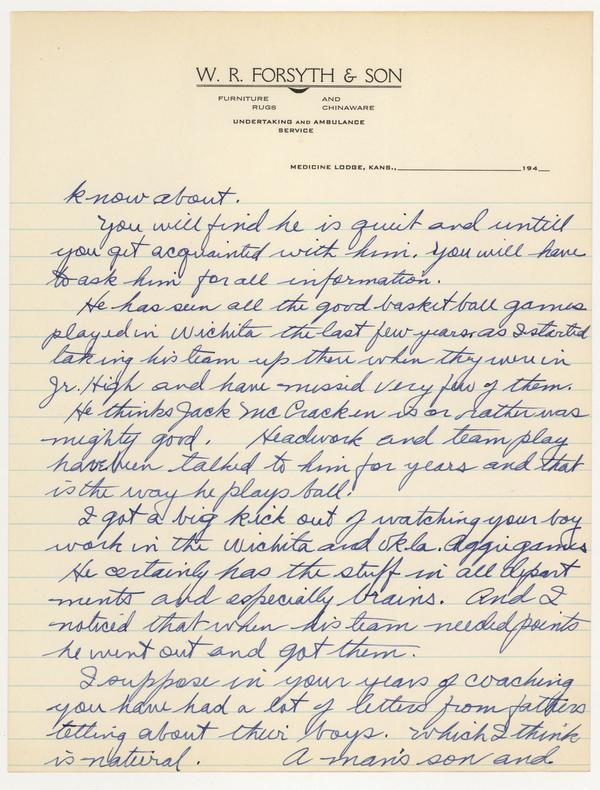 W. R. FORSYTH & SON
FURNITURE AND
RUGS CHINAWARE
UNDERTAKING AND AMBULANCE
SERVICE
MEDICINE LODGE, KANS., 194
know about.
You will find he is quiit and untill
you get acquainted with him. You will have
to ask him for all information.
He has seen all the good basket ball games
played in Wichita the last few years, as I started
taking his team up there when they were in
Jr. High and have missed very few of them.
He thinks Jack McCracken is or rather was
mighty good. Headwork and team play
have been talked to him for years and that
is the way he plays ball.
I got a big kick out of watching your boy
work in the Wichita and Okla. Aggi games
He certainly has the stuff in all depart
ments and especially brains. And I
noticed that when his team needed points
he went out and got them.
I suppose in your years of coaching
you have had a lot of letters from fathers
telling about their boys. Which I think
is natural. A man's son and